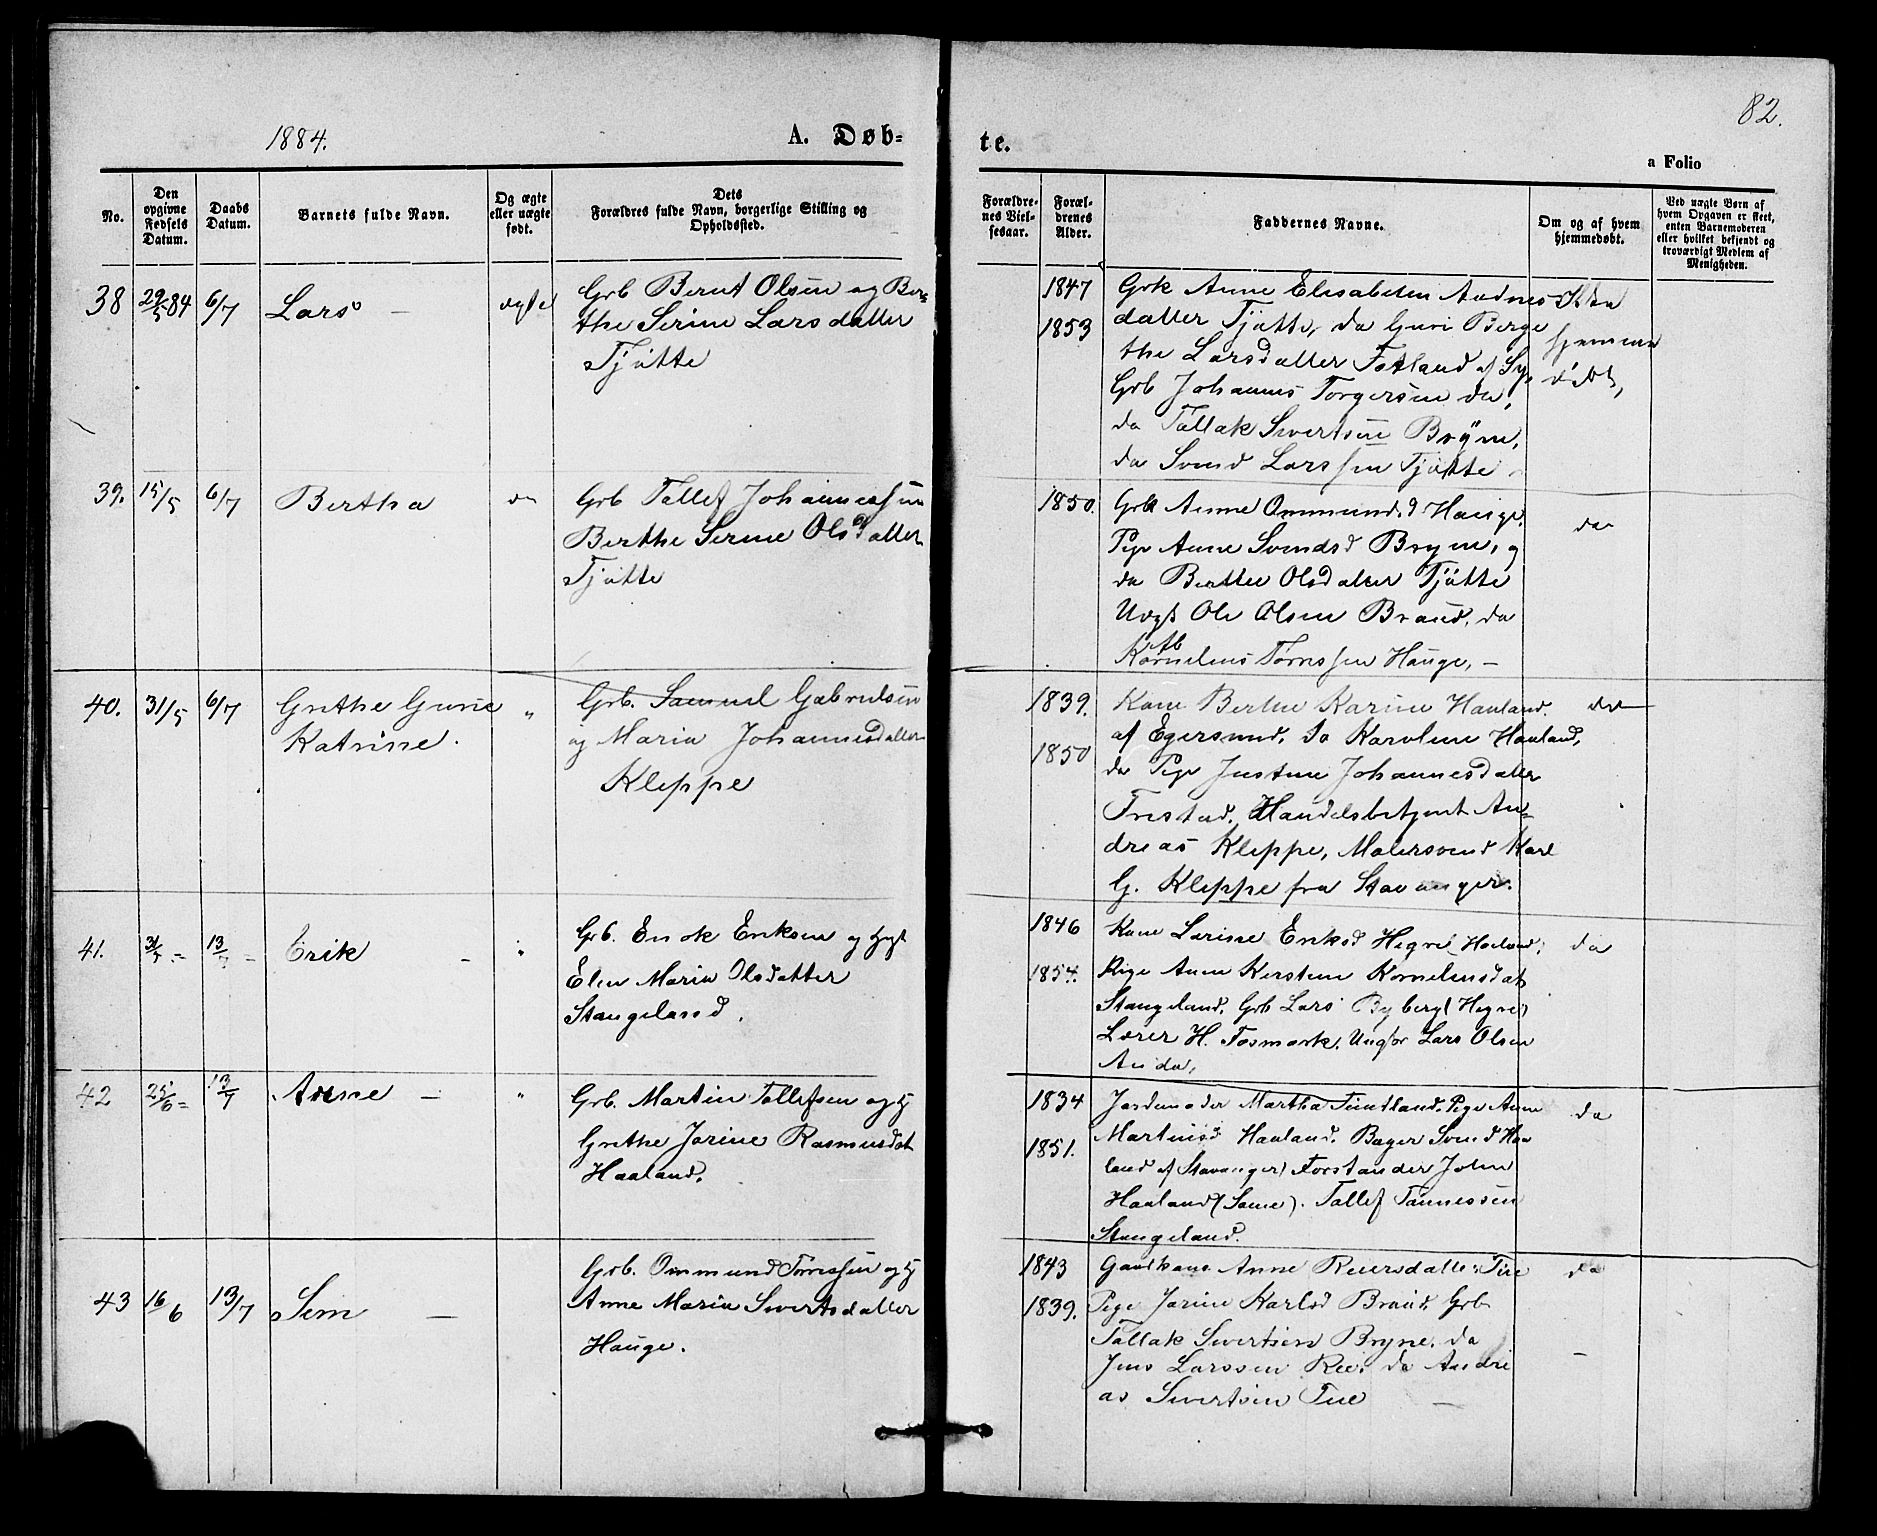 1884.
A. Døb=
te.
82.
a Folio
No.
Den opgivne Fødsels Datum.
Daabs Datum.
Barnets fulde Navn.
Og ægte eller uægte født.
Dets Forældres fulde Navn, borgerlige Stilling og Opholdssted.
Forældrenes Vielsesaar.
Forældrenes Alder.
Faddernes Navne.
Om og af hvem hjemmedøbt.
Ved uægte Børn af hvem Opgaven er skeet, enten Barnemoderen eller hvilket bekjendt og troværdigt Medlem af Menigheden.
38 29/5 84 6/7 Lars - ægte
Grb Bernt Olsen og Ber=
the Serine Larsdatter
Tjøtte
1847
1853
Grk Anne Elisabeten Aadnes
datter Tjøtte, da Guri Berge
the Larsdatter Fotland af
Grb Johannes Torgersen da,
da Tallak Sivertsen Bryne,
da Svend Larssen Tjøtte
Ikke
hjemme
døbt,
39. 15/5 6/7 Bertha da
Grb Tallef Johannessen
Berthe Serine Olsdatter
Tjøtte
1850.
Grk Anne Ommundsd Hauge
Pige Anne Svendsd Bryne, og
da Berthe Olsdatter Tjøtte
Ungk Ole Olsen Braud, da
Kornelius Tørressen Hauge, -
da
40. 31/5 6/7 Grethe Gurine
Katrine. "
Grb. Samuel Gabrielsen
og Maria Johannesdatter
Kleppe
1839.
1850
Kone Berthe Karine Haaland.
af Egersund, da Karoline Haaland,
da Pige Justine Johannesdatter
Trestad, Handelsbetjent An=
dreas Kleppe, Malersvend Karl
G. Kleppe fra Stavanger.
da
41. 31/5 - 13/7 - Erik - "
Grb. Enok Eriksen og
Elen Maria Olsdatter
Stangeland.
1846
1854.
Kone Larine Eriksd Hegre Haaland,
Pige Anne Kirstine Korneliusdat
Stangeland, Grb Lars Byberg (Hegre)
Lærer H. Fosmark, Ungkr Lars Olsen
Anda,
da
42 25/6 - 13/7 Anne - "
Grb. Martin Tollefsen og h
Grethe Jorine Rasmusdat
Haaland.
1834
1851.
Jordmoder Martha Tindtland, Pige Anne
Martinsd Haaland, Bager Svend Haa
land af Stavanger, Forstander John
Haaland (Same). Tallef Tønnessen
Stangeland.
da
43 16/6 13/7 Sem -
Grb. Ommund Tørressen og h
Anne Maria Sivertsdatter
Hauge.
1843
1839.
Gaardkone Anne Reiersdatter Tue
Pige Jorine Karlsd Braud, Grb
Tallak Sivertsen Bryne, da
Jens Larssen Ree, da Andre
as Sivertsen Tue -
da